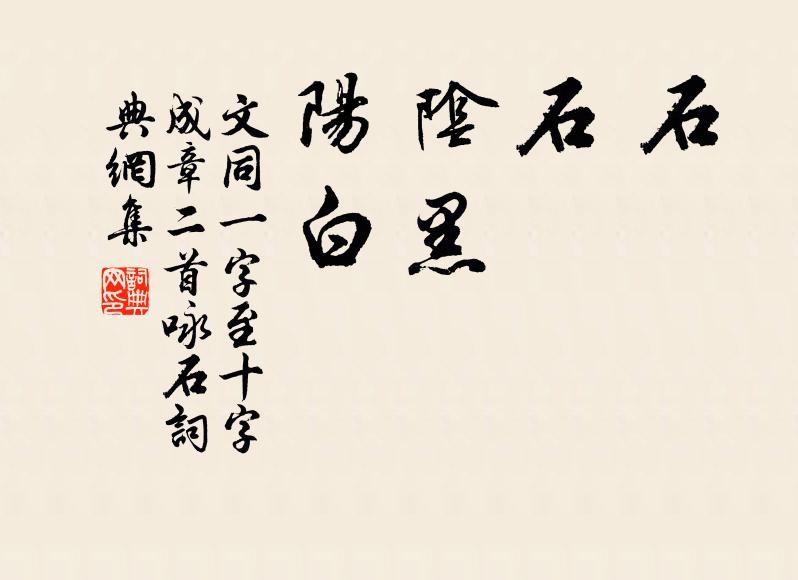 石
石
陰黑
陽白
文同一字至十字
成章二首咏石詞
典網集
詞典
网印